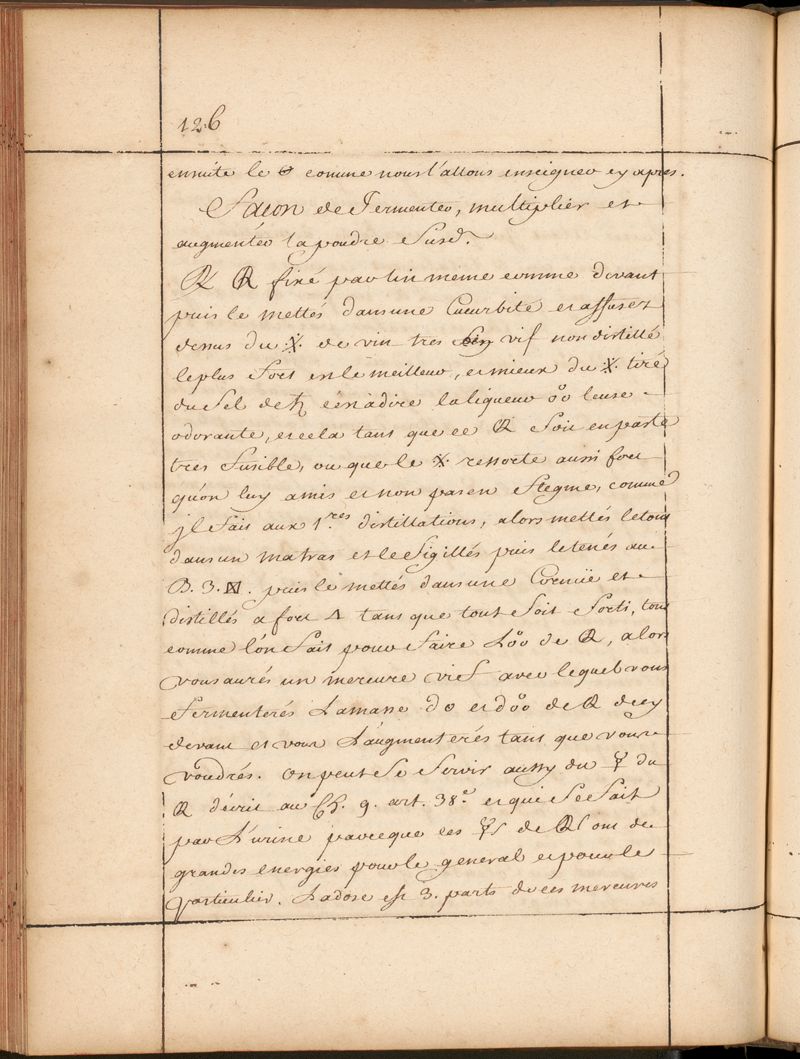 126
ensuite le 🜔 comme nous l'allons enseigner cy apres.
Façon de Fermenter, multiplier et
augmenter la poudre Susd.e
℞ fixé par luy meme comme devant
puis le mettés dans une Cucurbite et affusez
dessus du :X: de vin tres vif non distillé
le plus fort en le meilleur, et mieux du :X: tiré
du Sel de ♄ c'en à dire la liqueur oleuse
odorante, et cela tant que ce Soit en paste
tres fusible, ou que le :X: ressorte aussi fort
qu'on luy a mis et non pas en flegme, comme
jl fait aux 1.res distillations, alors mettés le tout
dans un matras et le Sigillés puis le tenés au
B. 3. puis le mettés dans une Cornüe et
distillés a fort 🜂 tant que tout Soit Sorti, tout
comme l'on fait pour faire L'oo de, alors
vous aurés un mercure vief avec lequel vous
Fermenterés La masse d'o et d'oo de de cy
devant et vous L'augmenterés tant que vous
voudrés. On peut Se Servir aussy du ☿ du
décrit au Ch. 9. art. 38.e et qui Se fait
par L'urine parceque ces ☿s de ont de
grandes energies pour le general et pour le
particulier. La dose est 3. parts de ces mercures